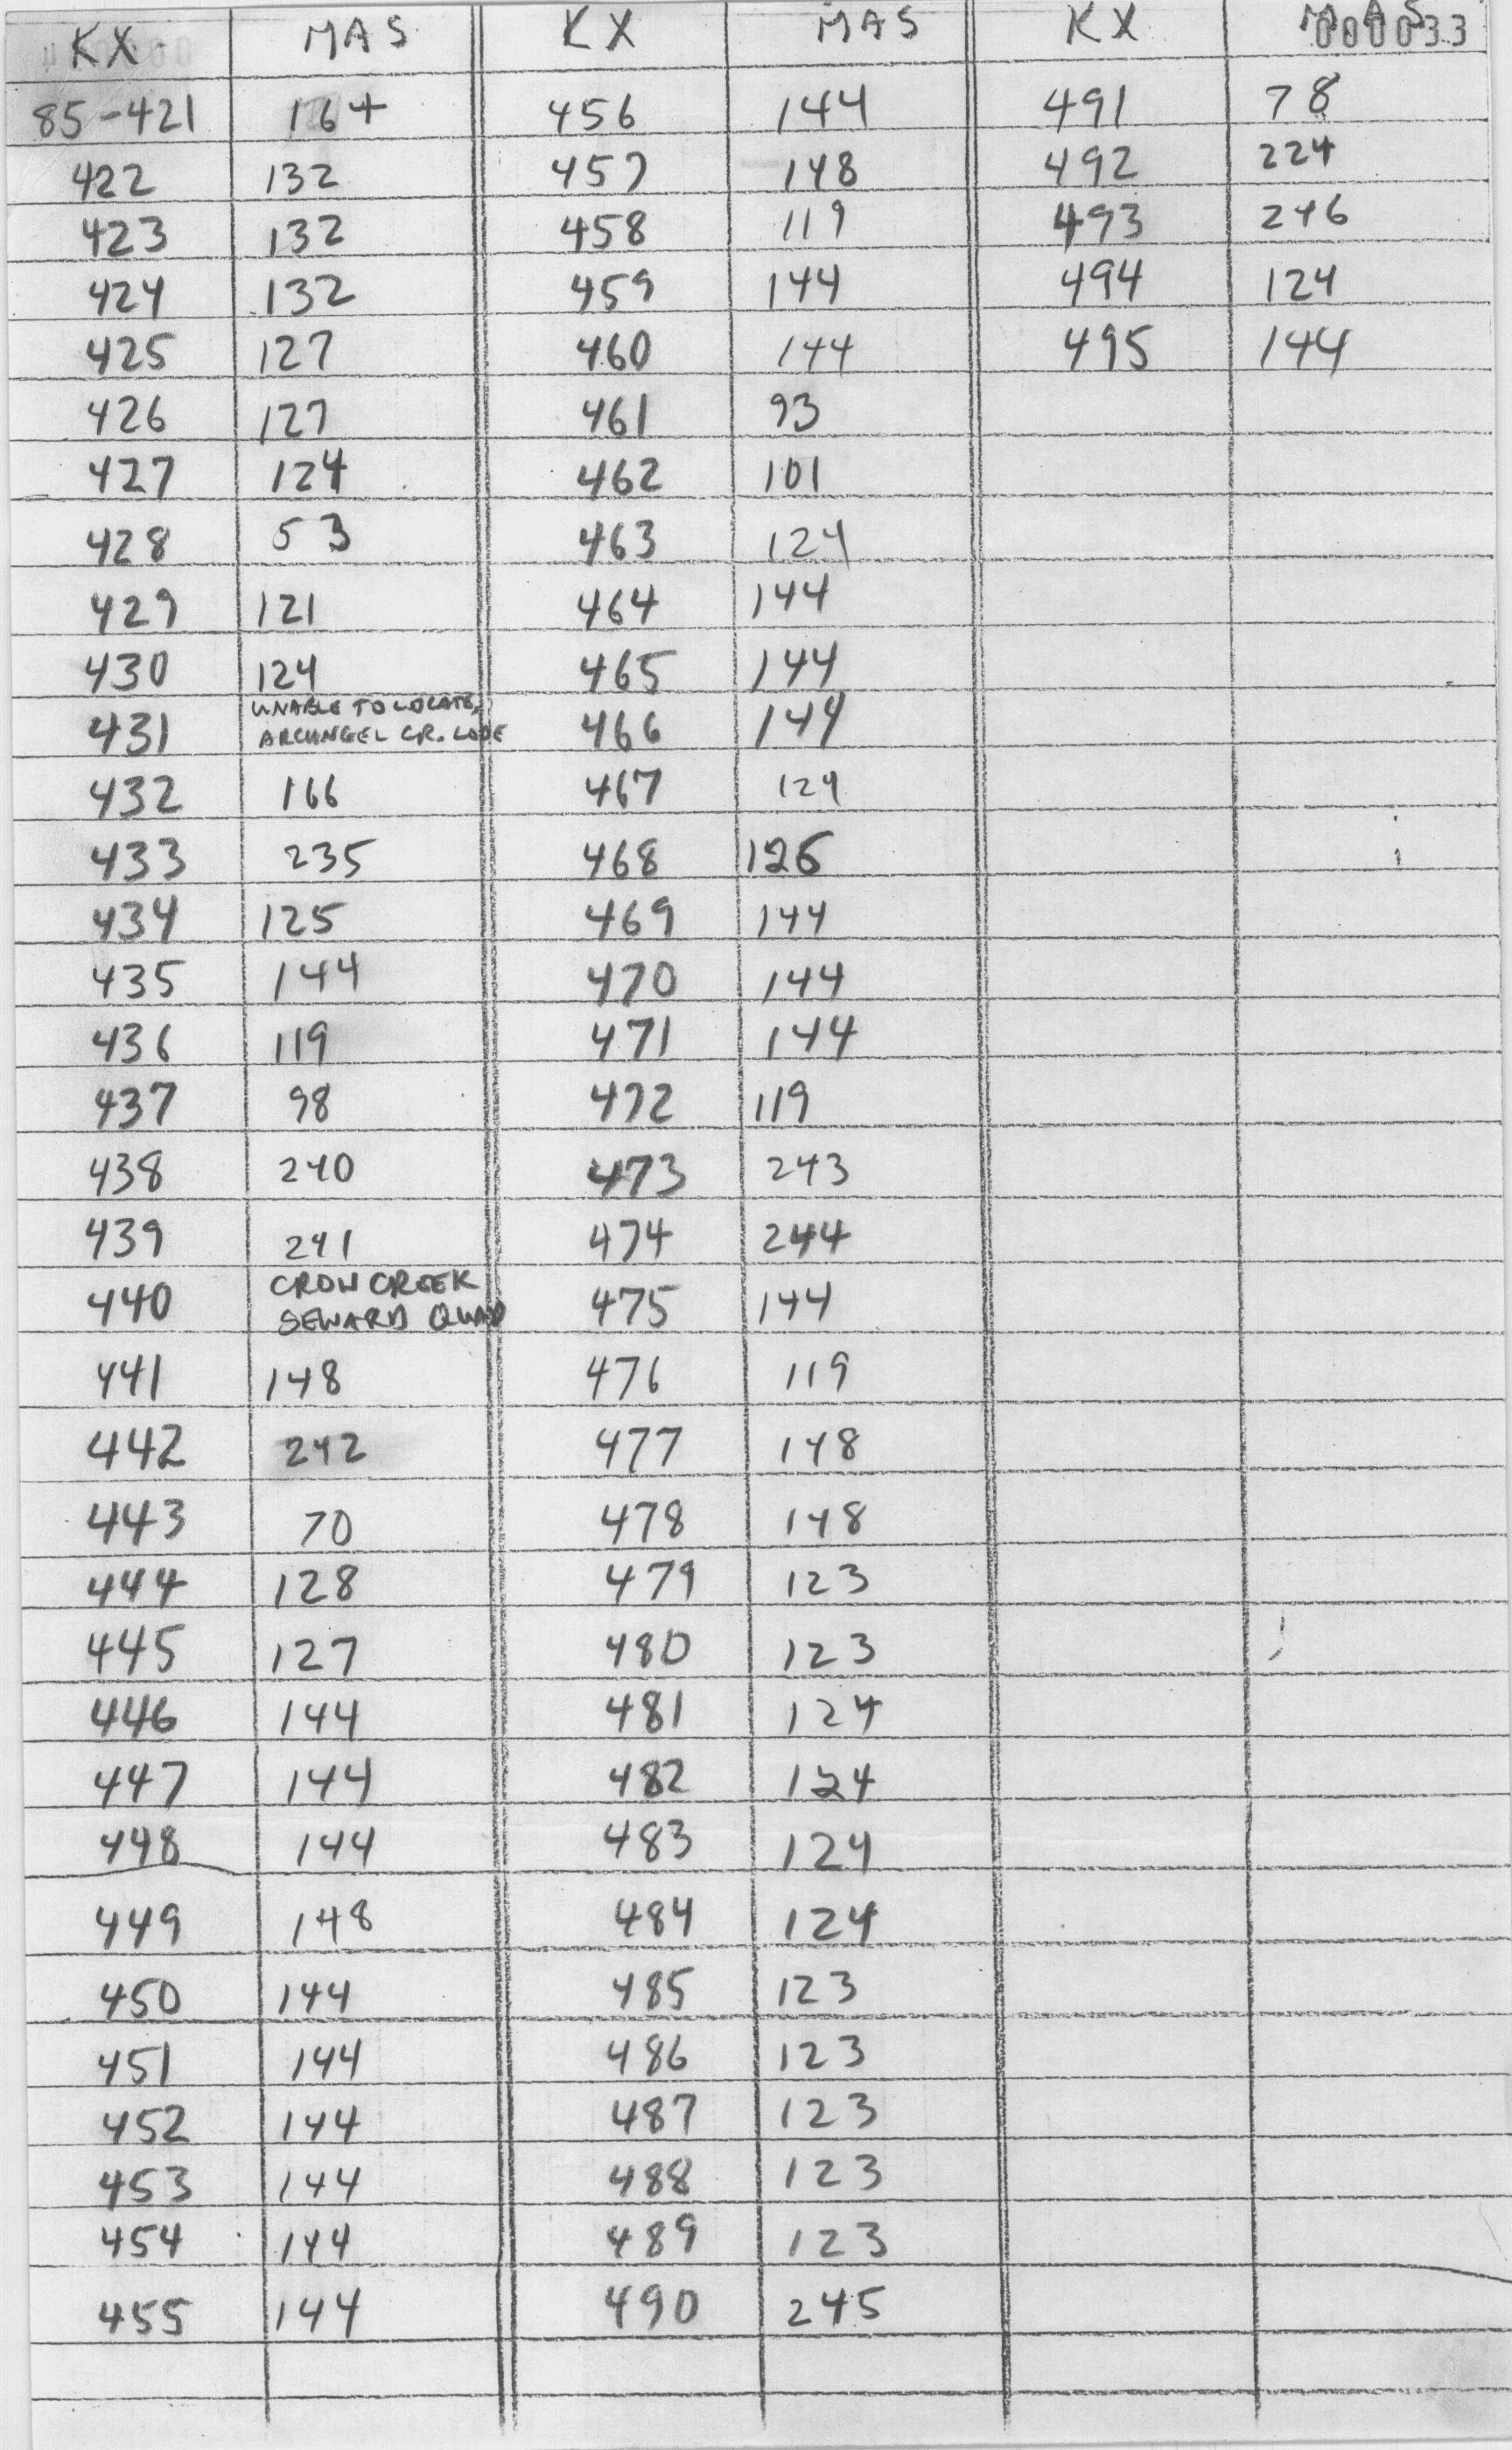 KX MAS KX MAS KX MAS
000033
85-421 164 456 144 491 78
422 132 457 148 492 224
423 132 458 119 493 246
424 132 459 144 494 124
425 127 460 144 495 144
426 127 461 93
427 124 462 101
428 53 463 124
429 121 464 144
430 124 465 144
UNABLE TO LOCATE,
431 ARCHNGEL CR. LODE 466 144
432 166 467 124
433 235 468 126
434 125 469 144
435 144 470 144
436 119 471 144
437 98 472 119
438 240 473 243
439 241 474 244
CROW CREEK
440 SEWARD QUAD 475 144
441 148 476 119
442 242 477 148
443 70 478 148
444 128 479 123
445 127 480 123
446 144 481 124
447 144 482 124
448 144 483 124
449 148 484 124
450 144 485 123
451 144 486 123
452 144 487 123
453 144 488 123
454 144 489 123
455 144 490 245